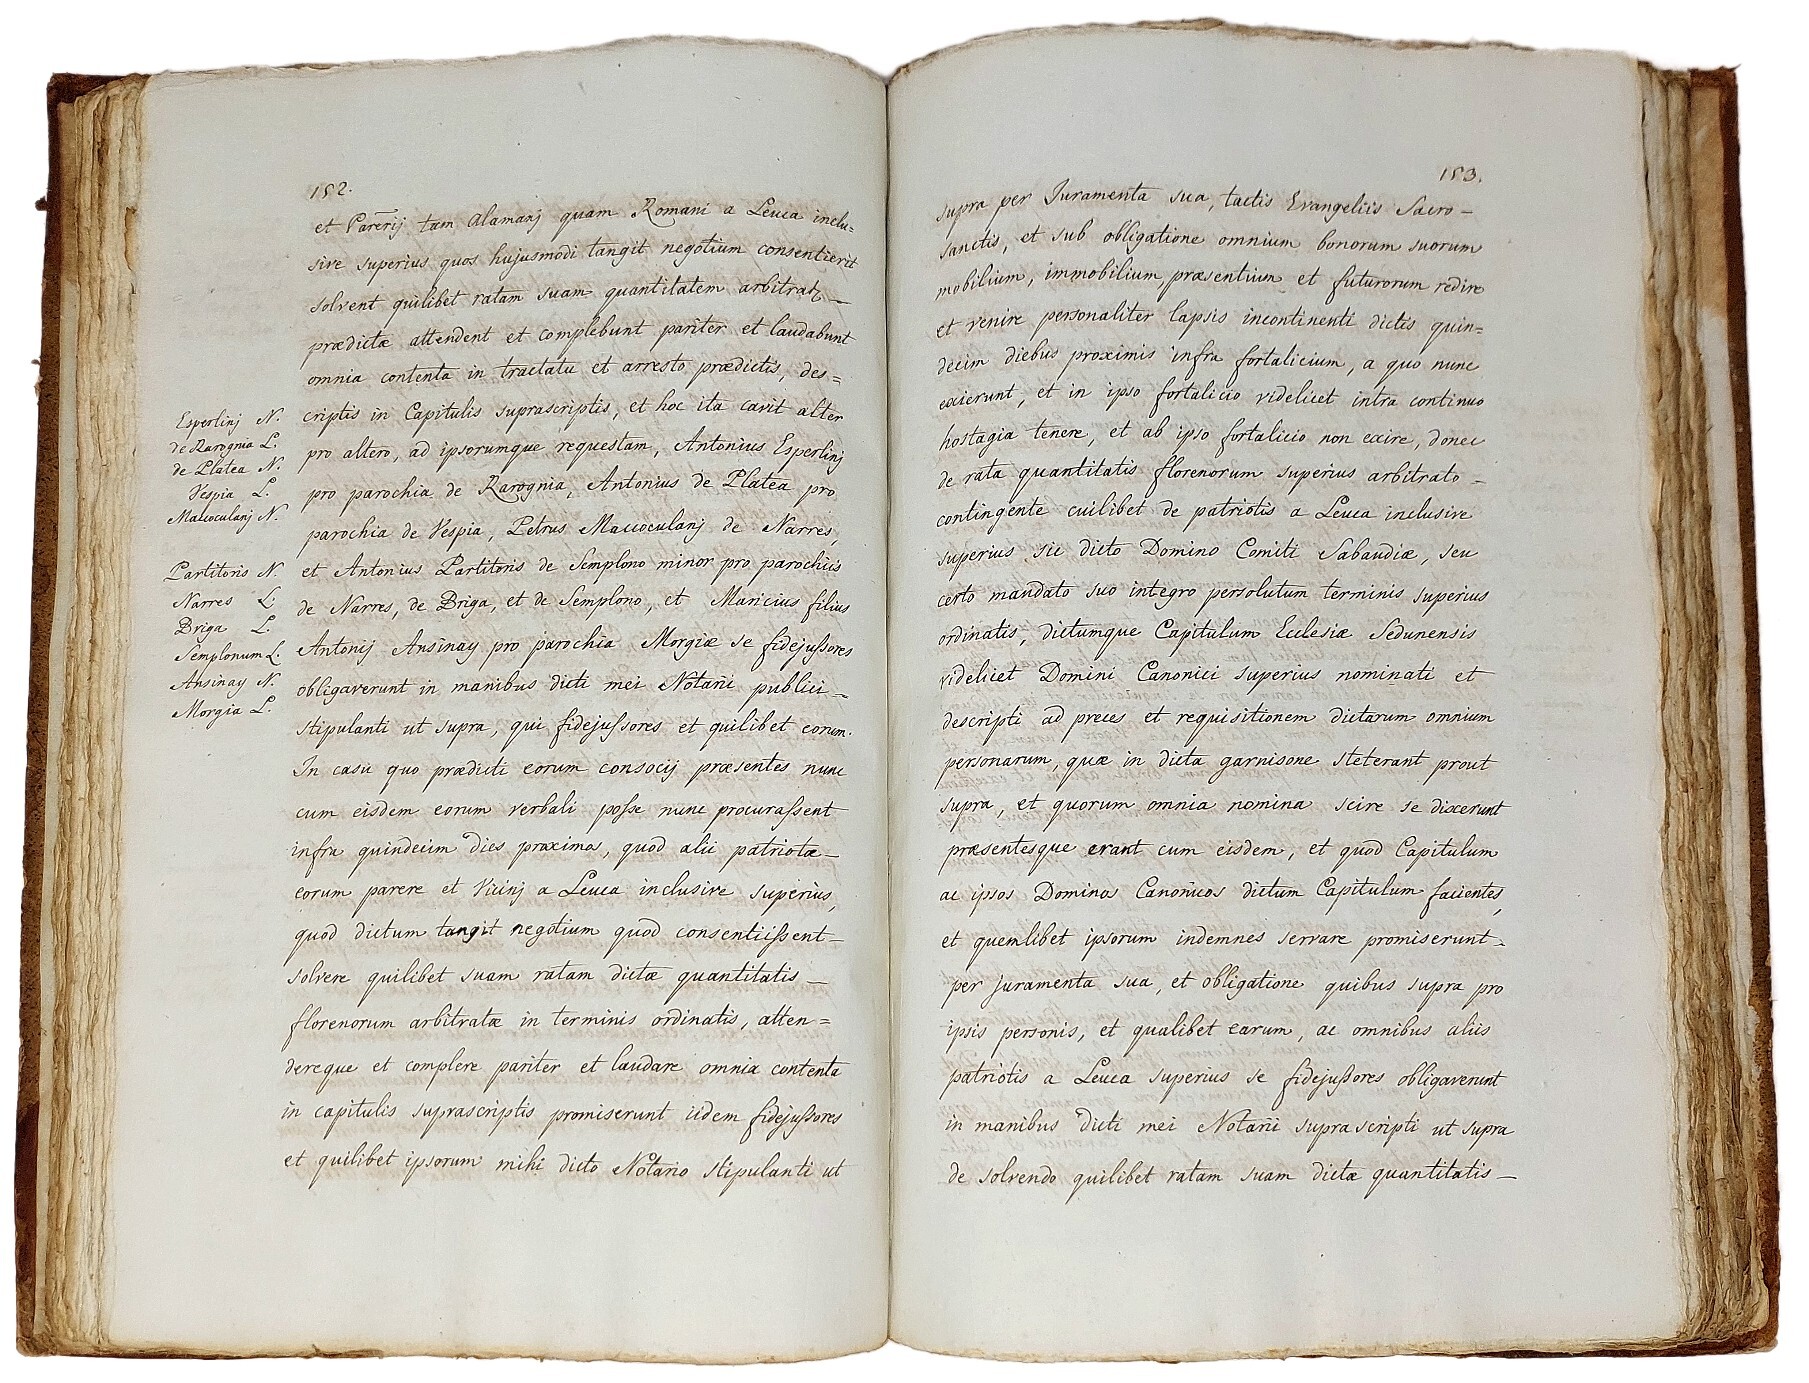 152.
et Parerij tam Alamanj quam Romani a Leuca inclu=
sive superius quos hujusmodi tangit negotium consentierit
solvent quilibet ratam suam quantitatem arbitrat
prædictæ attendent et complebunt pariter et laudabunt
omnia contenta in tractatu et arresto prædictis, des=
criptis in Capitulis suprascriptis, et hoc ita cavit alter
pro altero, ad ipsorumque requestam, Antonius Esperlinj
pro parochia de Rarognia, Antonius de Platea pro
parochia de Vespia, Petrus Maccoculanj de Narres,
et Antonius Partitoris de Semplono minor pro parochiis
de Narres, de Briga, et de Semplono, et Maricius filius
Antonij Ansinay pro parochia Morgiæ se fidejussores
obligaverunt in manibus dicti mei Notarii publici –
stipulanti ut supra, qui fidejussores et quilibet eorum.
In casu quo prædicti eorum consocij præsentes nunc
cum eisdem eorum verbali posse nunc procurassent
infra quindecim dies proximos, quod alii patriotæ –
eorum parere et Vicinj a Leuca inclusive superius,
quod dictum tangit negotium quod consentiissent –
solvere quilibet suam ratam dictæ quantitatis –
florenorum arbitratæ in terminis ordinatis, atten=
dereque et complere pariter et laudare omnia contenta
in capitulis suprascriptis promiserunt iidem fidejussores
et quilibet ipsorum mihi dicto Notario stipulanti ut
Esperlinj N.
de Rarognia L.
de Platea N.
Vespia L.
Maccoculanj N.
Partitoris N.
Narres L.
Briga L.
Semplonum L.
Ansinay N.
Morgia L.
153.
supra per Juramenta sua, tactis Evangeliis Sacro –
sanctis, et sub obligatione omnium bonorum suorum
mobilium, immobilium, præsentium et futurorum redire
et venire personaliter lapsis incontinenti dictis quin=
decim diebus proximis infra fortalicium, a quo nunc
exierunt, et in ipso fortalicio videlicet intra continuo
hostagia tenere, et ab ipso fortalicio non exire, donec
de rata quantitatis florenorum superius arbitrato –
contingente cuilibet de patriotis a Leuca inclusive
superius sit dicto Domino Comiti Sabaudiæ, seu
certo mandato suo integro persolutum terminis superius
ordinatis, dictumque Capitulum Ecclesiæ Sedunensis
videlicet Domini Canonici superius nominati et
descripti ad preces et requisitionem dictarum omnium
personarum, quæ in dicta garnisone steterant prout
supra, et quorum omnia nomina scire se dixerunt
præsentesque erant cum eisdem, et quod Capitulum
ac ipsos Dominos Canonicos dictum Capitulum facientes,
et quemlibet ipsorum indemnes servare promiserunt –
per Juramenta sua, et obligatione quibus supra pro
ipsis personis, et qualibet earum, ac omnibus aliis
patriotis a Leuca superius se fidejussores obligaverunt
in manibus dicti mei Notarii supra scripti ut supra
de solvendo quilibet ratam suam dictæ quantitatis –